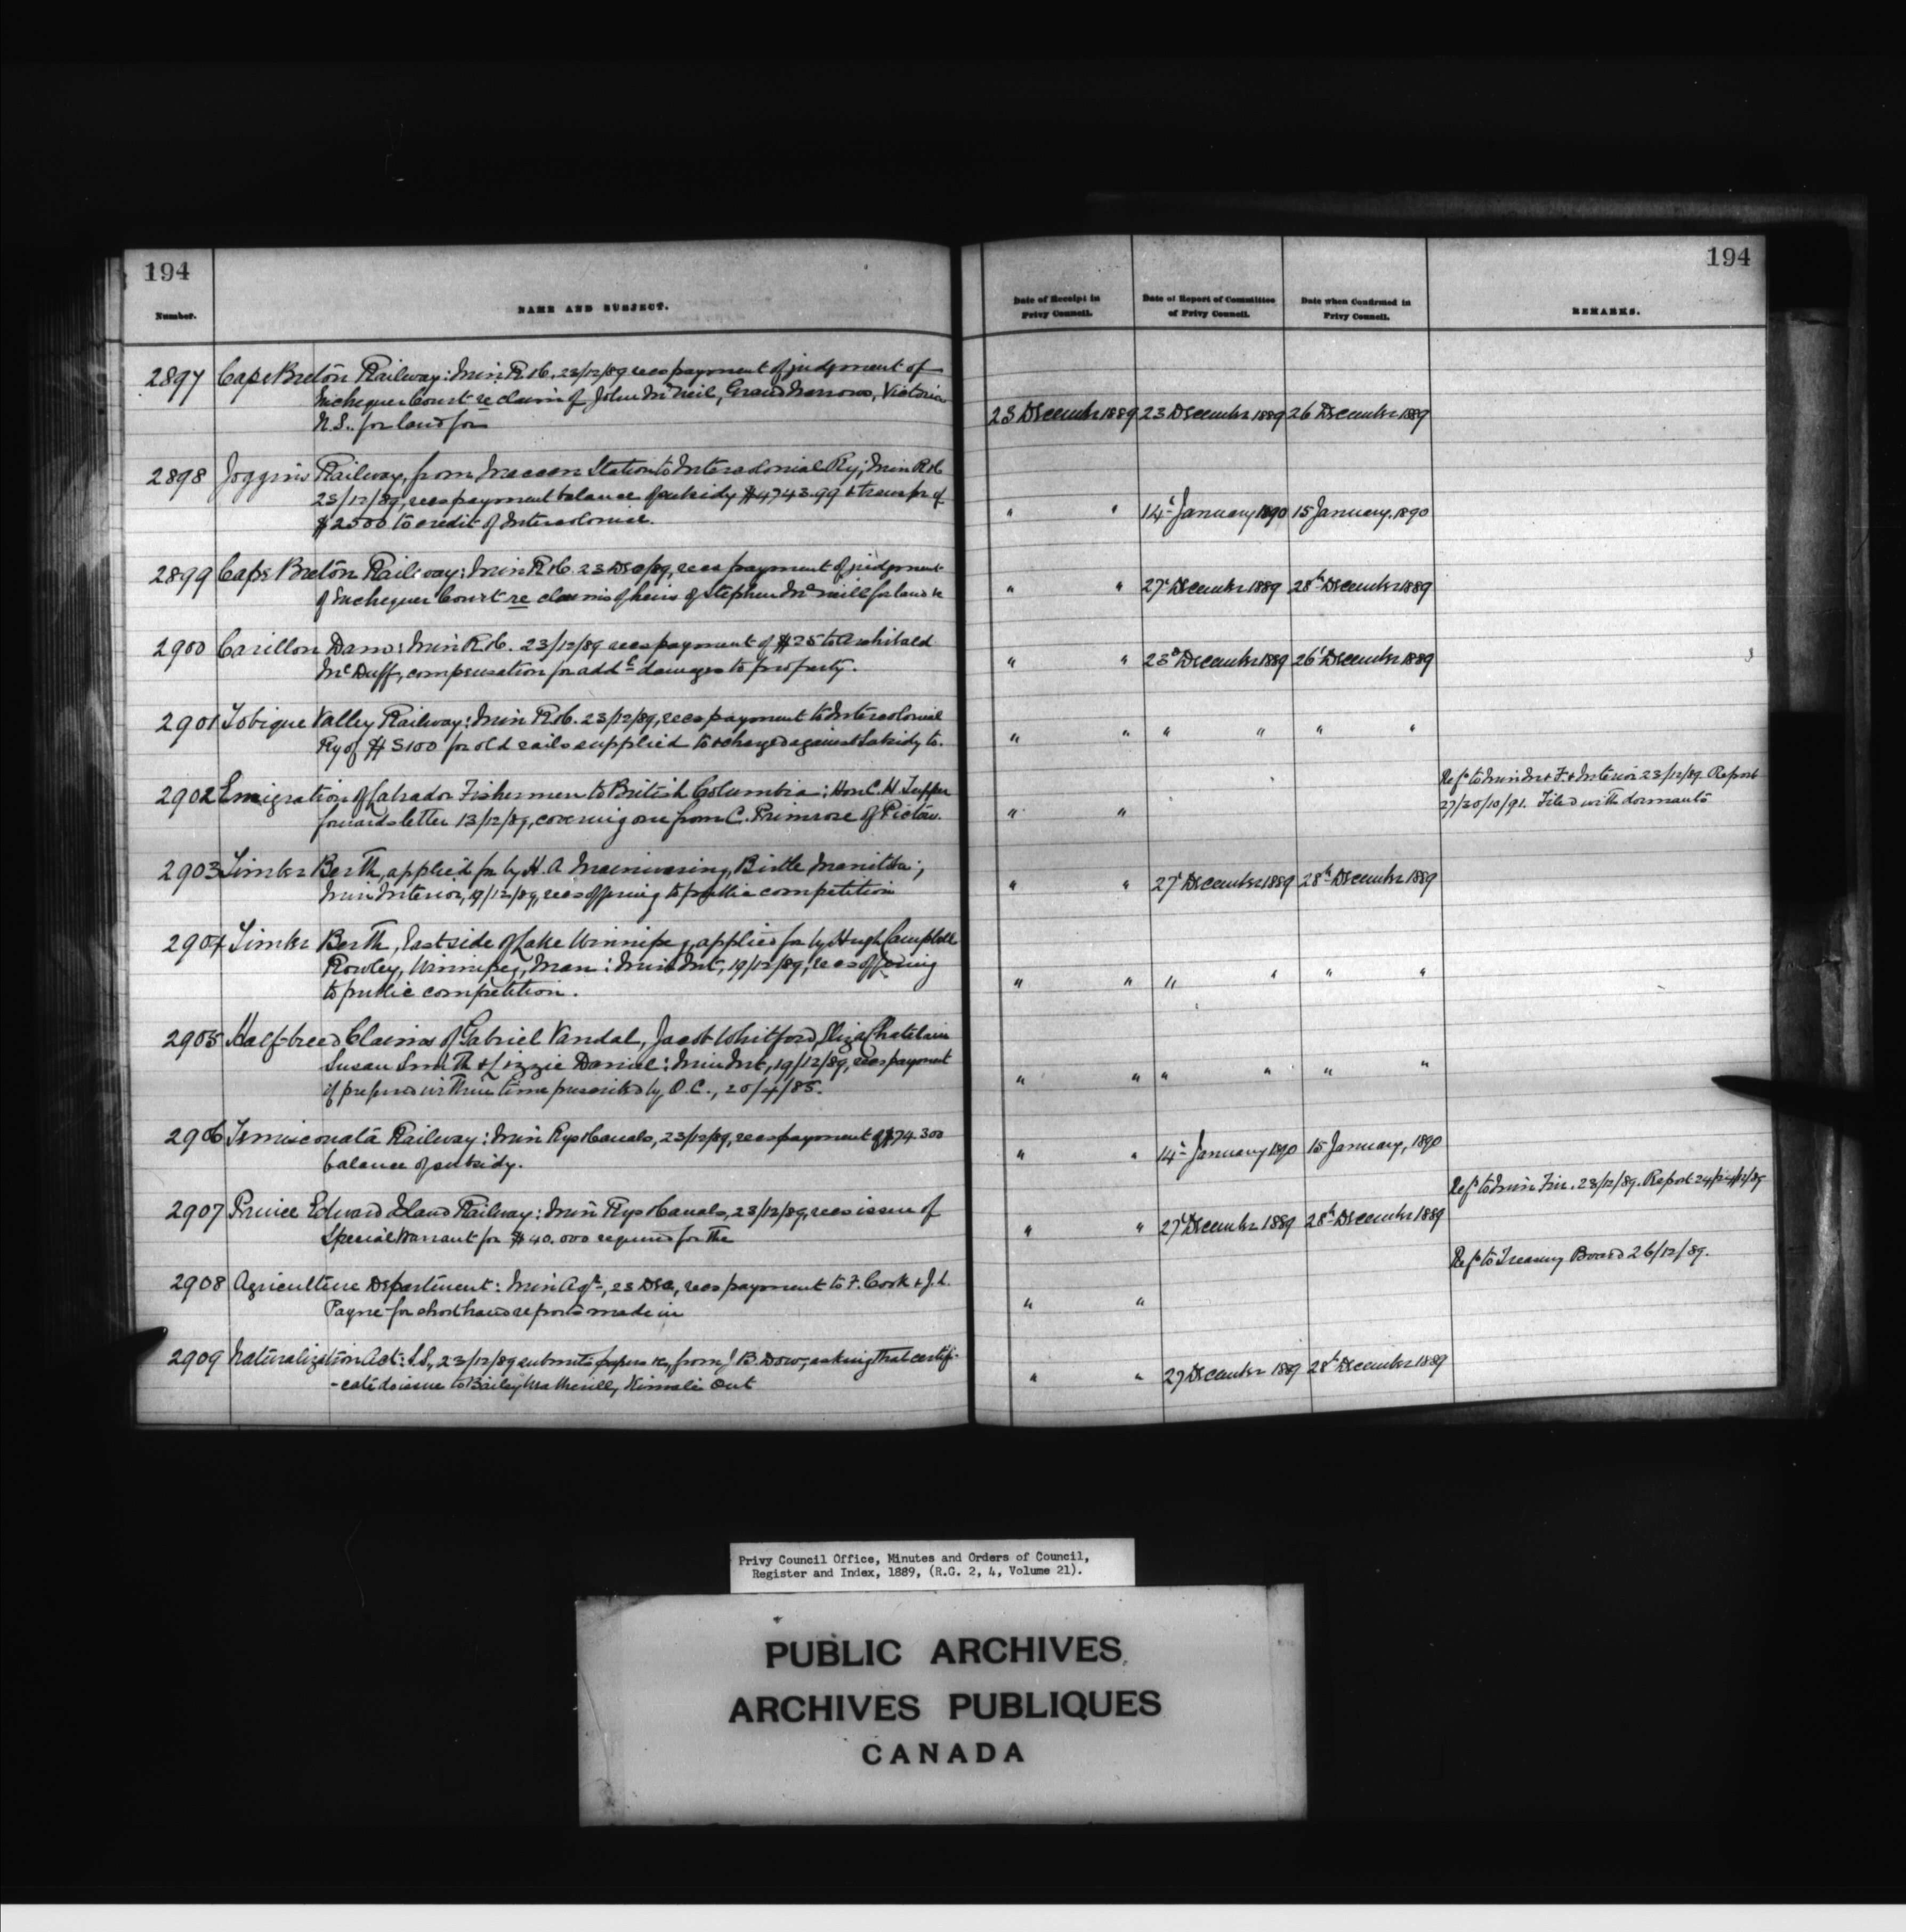 194
194
Number.
NAME AND SUBJECT.
Date of Receipt in Privy Council.
Date of Report of Committee of Privy Council.
Date when Confirmed in Privy Council.
REMARKS.
2897 Cape Breton Railway: Min. R &C. 23/12/89 recs payment of judgment of
Exchequer Court re claim of John McNeil, Grand Narrows, Victoria
N.S.. for land for
23 December 1889 23 December 1889 26 December 1889
2898 Joggins Railway, from Maccan Station to Intercolonial Ry; Min R &C
23/12/89, recs payment balance of subsidy $4743.99 & transfer of
$2500 to credit of Intercolonial.
" " 14th January 1890 15 January, 1890
2899 Cape Breton Railway: Min R &C. 23 Dec/89, recs payment of judgment
of Exchequer Court re claims of heirs of Stephen McNeill for land &c
" " 27th December 1889 28th December 1889
2900 Carillon Dam: Min R &C. 23/12/89 recs payment of $25 to Archibald
McDuff, compensation for addl damages to property.
" " 23d December 1889 26th December 1889
2901 Tobique Valley Railway: Min R &C. 23/12/89, recs payment to Intercolonial
Ry of $5100 for old rails supplied to & charged against subsidy to.
" " " " " "
2902 Emigration of Labrador Fishermen to British Columbia: Hon C. H. Tupper
forwards letter 13/12/89, covering one from C. Primrose of Pictou.
" "
Refd to Min M & F. & Interior 23/12/89. Report
27/30/10/91. Filed with dormants
2903 Timber Berth, applied for by H. A Manwaring, Birtle Manitoba;
Min Interior, 19/12/89, recs offering to public competition
" " 27th December 1889 28th December 1889
2904 Timber Berth, East side of Lake Winnipeg, applied for by Hugh Campbell
Rowley, Winnipeg, Man: Min Int, 19/12/89, recs offering
to public competition.
" " " " " "
2905 Half-breed Claims of Gabriel Vandal, Jacob Whitford, Eliza Chatelain
Susan Smith & Lizzie Daniel: Min Int, 19/12/89, recs payment
if preferred within time prescribed by O.C., 20/4/85.
" " " " " "
2906 Temiscouata Railway: Min Rys & Canals, 23/12/89, recs payment of $74300
balance of subsidy.
" " 14th January 1890 15 January, 1890
2907 Prince Edward Island Railway: Min Rys & Canals, 23/12/89, recs issue of
Special Warrant for $40.000 required for the
" " 27th December 1889 28th December 1889
Refd to Min Fin. 23/12/89. Report 24/12/89
2908 Agriculture Department: Min Agr, 23 Dec, recs payment to F. Cook & J. L.
Payne for shorthand reports made in
" "
Refd to Treasury Board 26/12/89.
2909 Naturalization Act: S.S, 23/12/89 submits papers &c, from J B. Dow, asking that certifi-
-cate do issue to Bailey Ont
" " 27 December 1889 28th December 1889
Privy Council Office, Minutes and Orders of Council,
Register and Index, 1889, (R.G. 2, 4, Volume 21).
PUBLIC ARCHIVES
ARCHIVES PUBLIQUES
CANADA